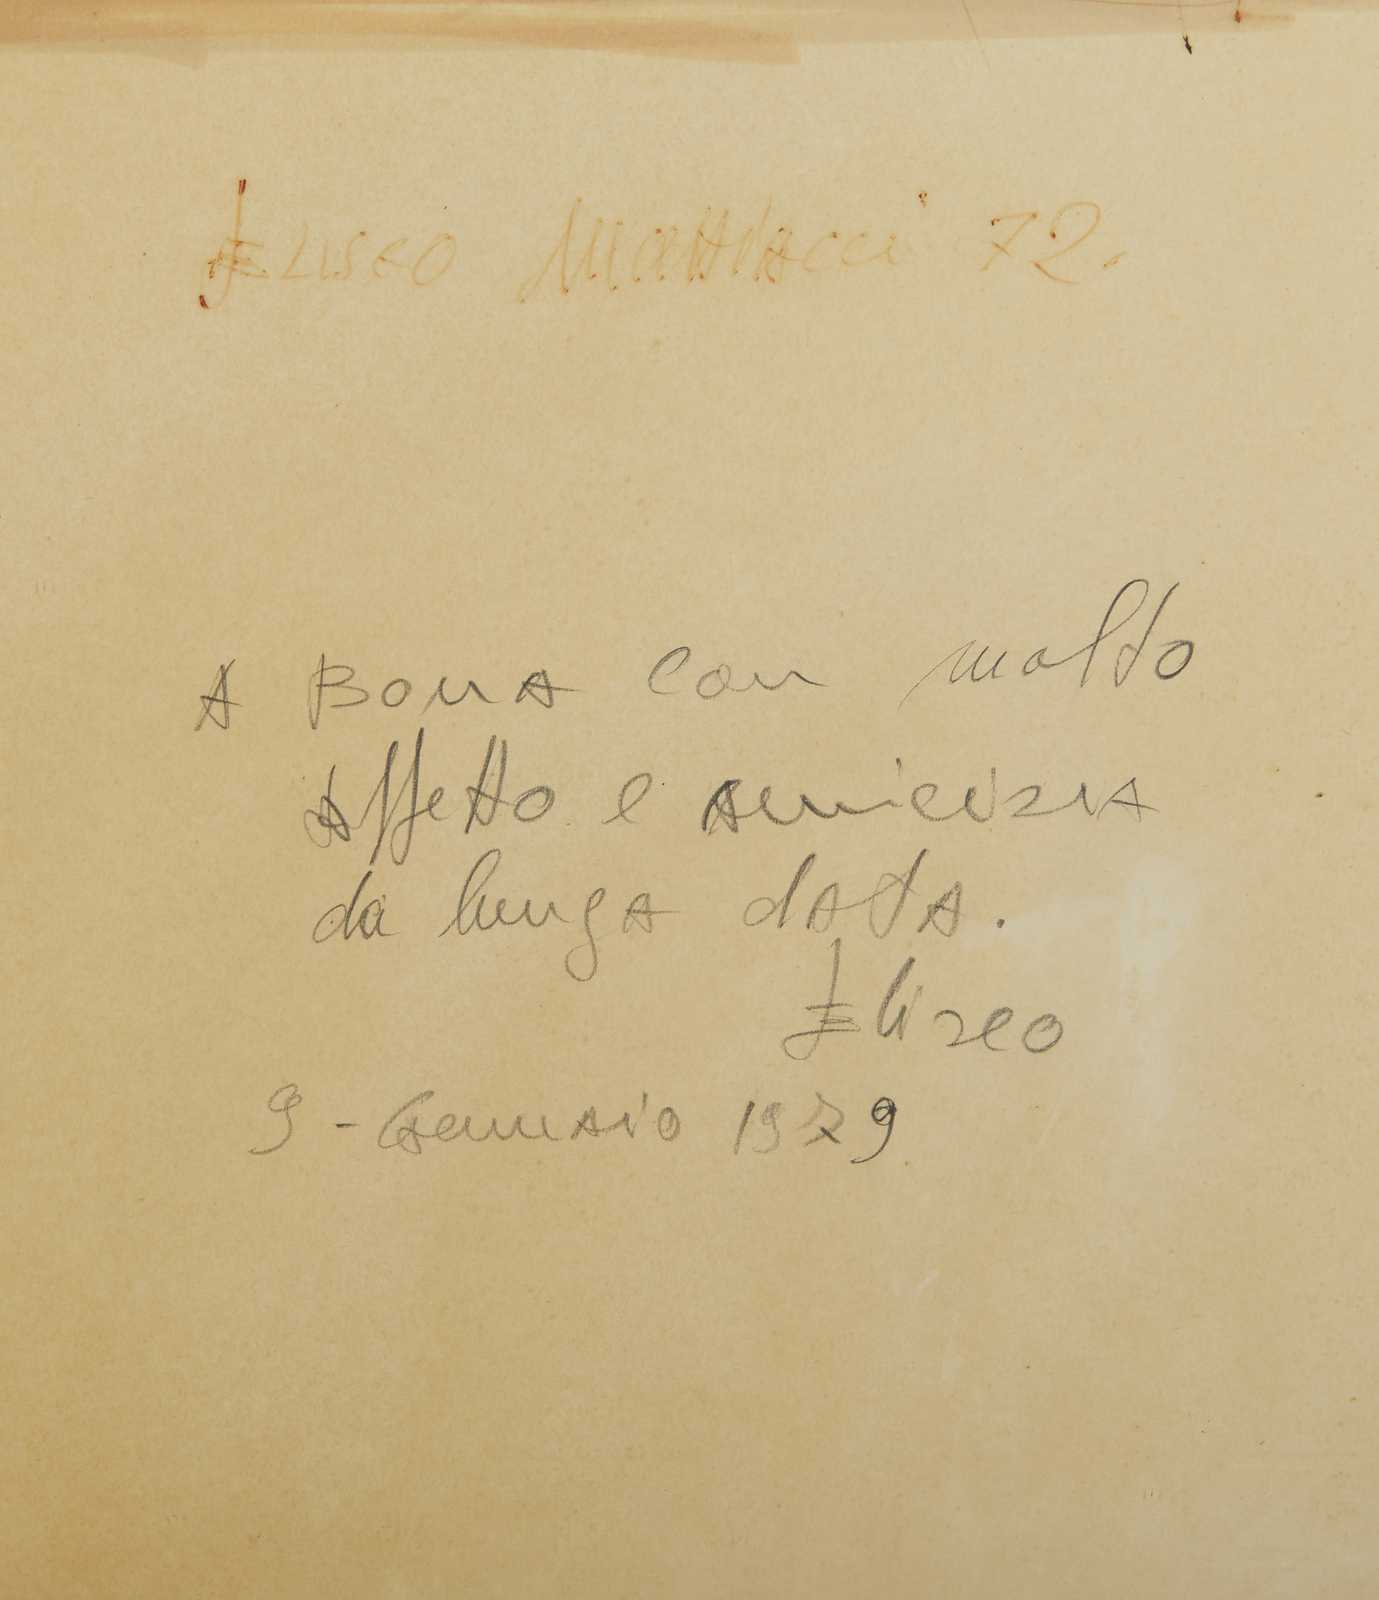 Eliseo Mattiacci 72.
A Bona con molto
affetto e amicizia
da lunga data.
Eliseo
9 - Gennaio 1979